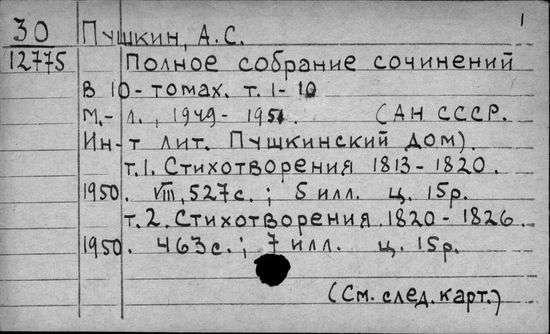 1
30 Пушкин, А.С.
12775 Полное собрание сочинений
в 10-томах. т. 1-10
М.-Л., 1949-1951. (АН СССР.
Ин-т лит. Пушкинский дом).
т.1. Стихотворения 1813-1820.
1950. VIII, 527с.; 5 илл. ц. 15р.
т.2. Стихотворения 1820-1826.
1950. 463с.; 7 илл. ц. 15р.
(См. след. карт.)